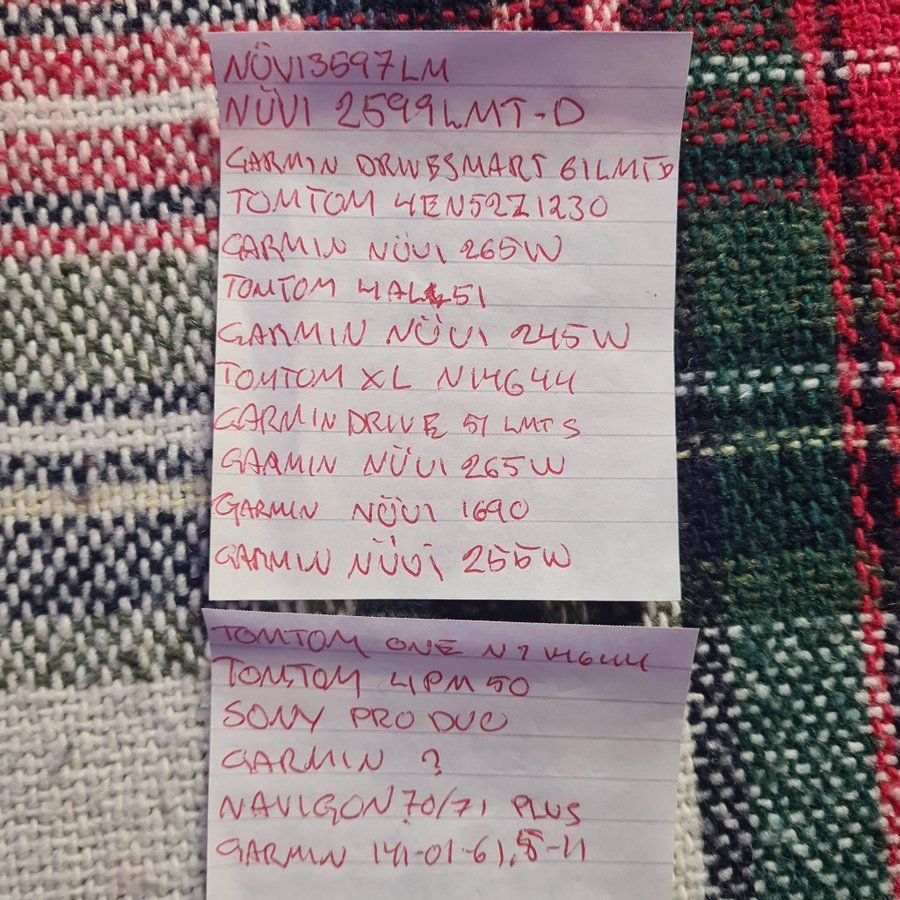 NÜVI3597LM
NÜVI 2599LMT-D
GARMIN DRIVESMART 61LMTD
TOMTOM 4EN52Z1230
GARMIN NÜVI 265W
TOMTOM 4AL51
GARMIN NÜVI 245W
TOMTOM XL N14644
GARMIN DRIVE 51 LMT S
GARMIN NÜVI 265W
GARMIN NÜVI 1690
GARMIN NÜVI 255W
TOMTOM ONE
TOMTOM 4PM50
SONY PRO DUO
GARMIN ?
NAVIGON 70/71 PLUS
GARMIN